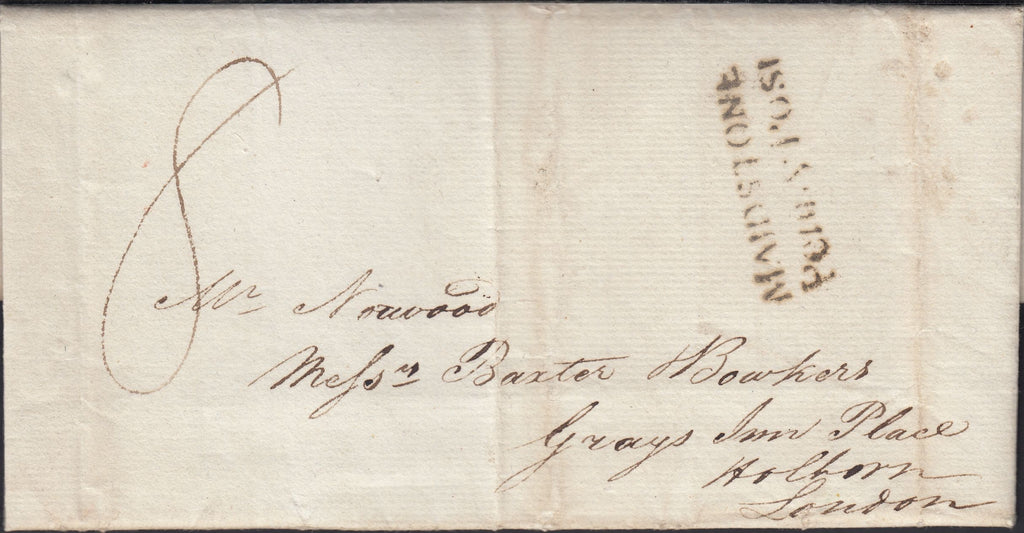 8
MAIDSTONE
PENNY POST
Mr Norwood
Messrs Baxter & Bowkers
Grays Inn Place
Holborn
London